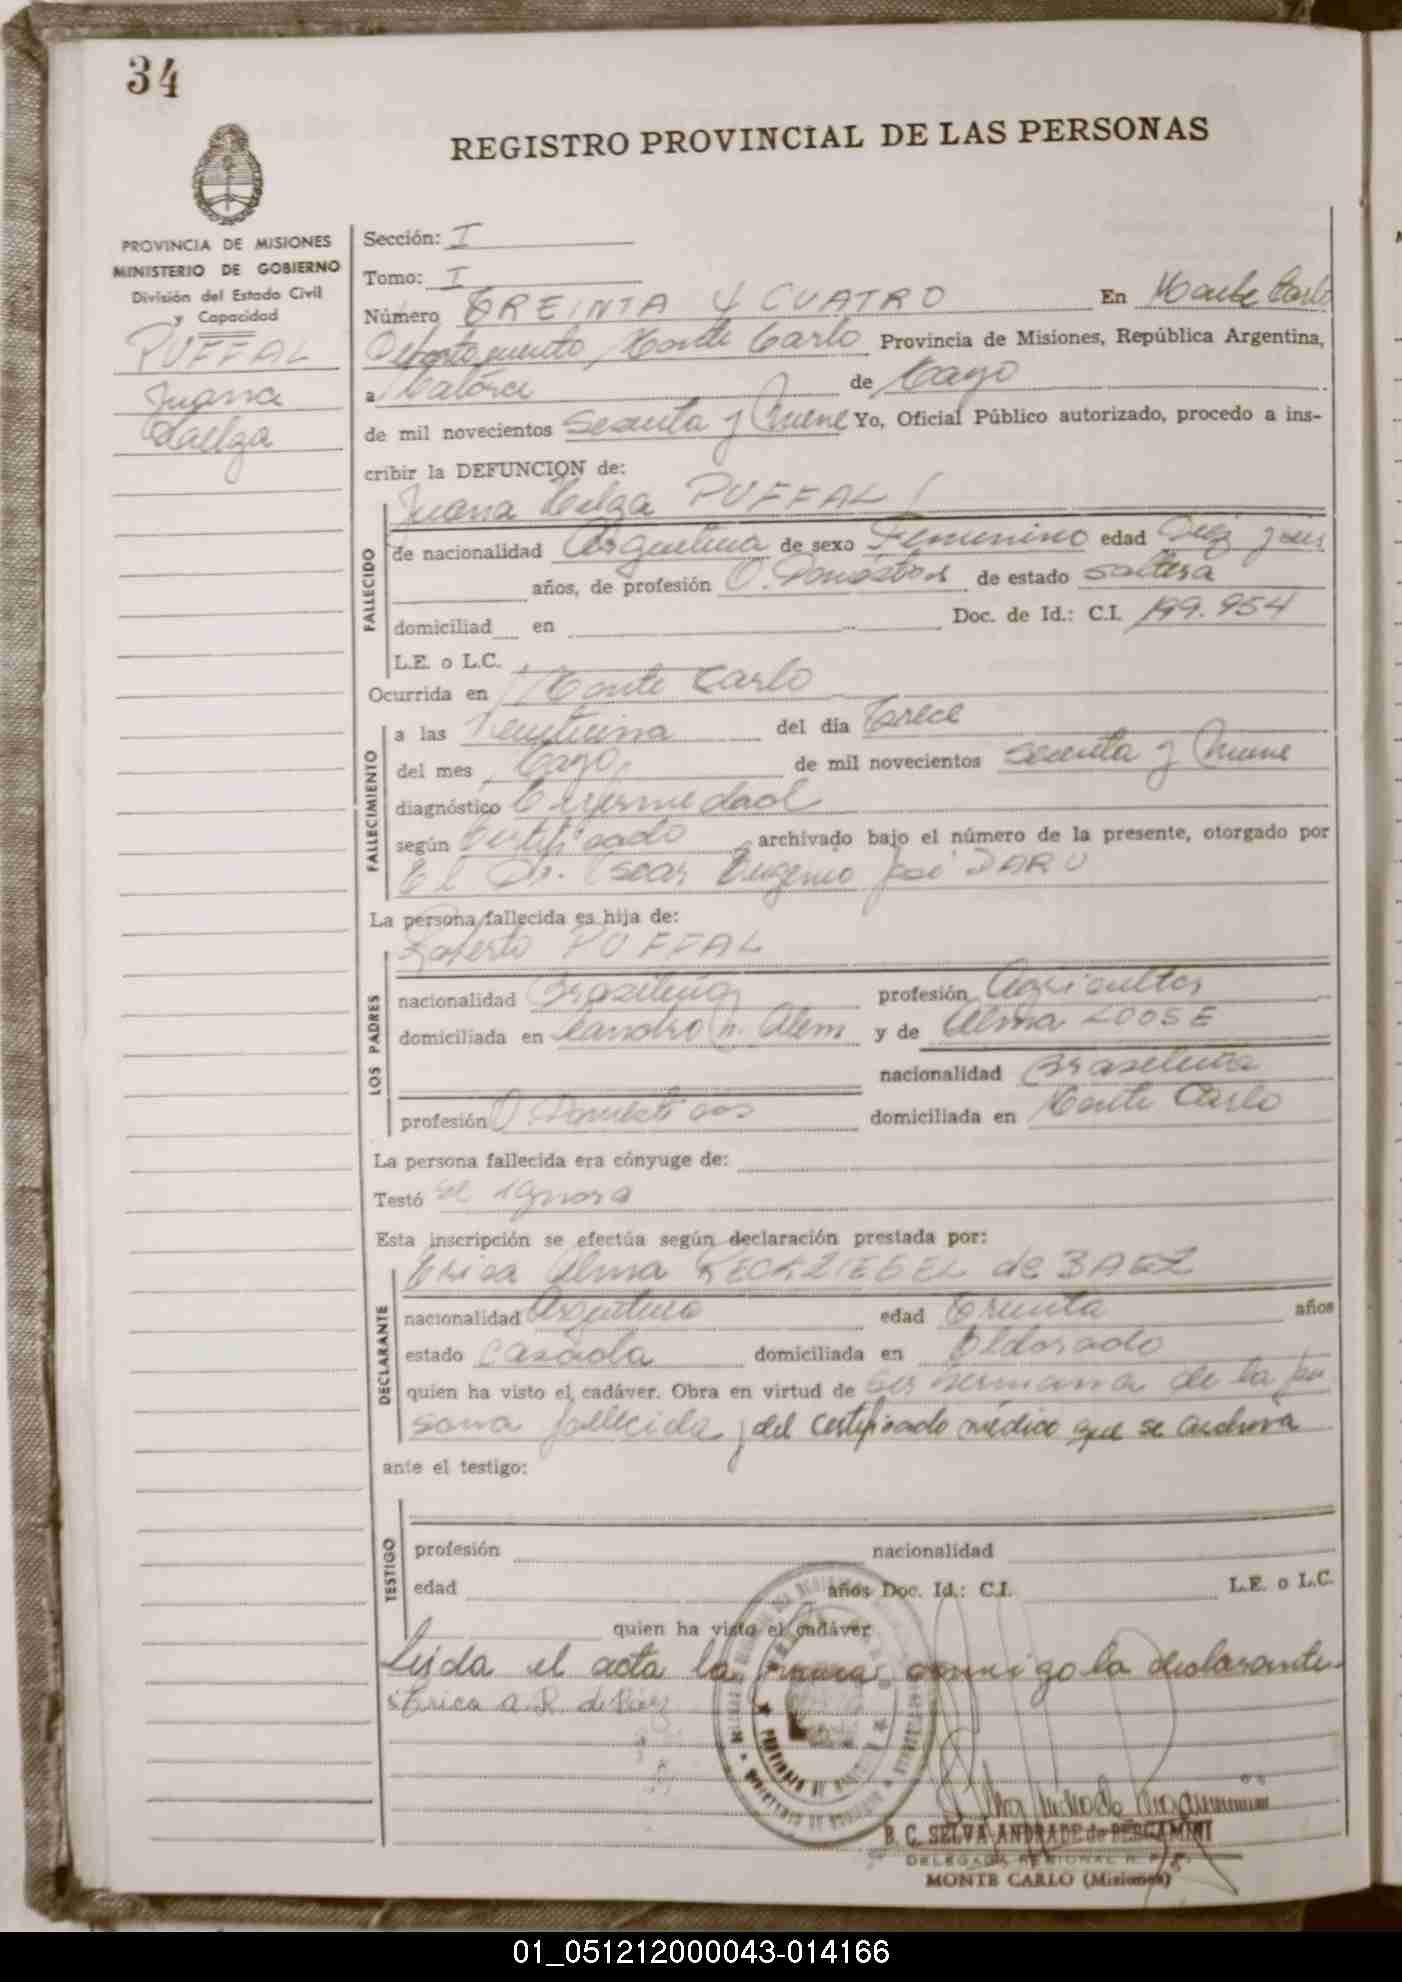 34
REGISTRO PROVINCIAL DE LAS PERSONAS
PROVINCIA DE MISIONES
MINISTERIO DE GOBIERNO
División del Estado Civil
y Capacidad
PUFFAL
Juana
Helga
Sección: I
Tomo: I
Número TREINTA Y CUATRO En Monte Carlo
Departamento Monte Carlo Provincia de Misiones, República Argentina,
a Catorce de Mayo
de mil novecientos Sesenta y Nueve Yo, Oficial Público autorizado, procedo a ins-
cribir la DEFUNCION de:
Juana Helga PUFFAL
FALLECIDO
de nacionalidad Argentina de sexo Femenino edad Diez y seis
años, de profesión Q. Domésticos de estado Soltera
domiciliad en Doc. de Id.: C.I. 199.954
L.E. o L.C.
Ocurrida en Monte Carlo
FALLECIMIENTO
a las Veintiuna del día Trece
del mes Mayo de mil novecientos Sesenta y Nueve
diagnóstico Enfermedad
según Certificado archivado bajo el número de la presente, otorgado por
El Dr. Oscar Eugenio José DARU
La persona fallecida es hija de:
Roberto PUFFAL
LOS PADRES
nacionalidad Brasileña profesión Agricultor
domiciliada en Leandro N. Alem y de Alma LOOSE
nacionalidad Brasileña
profesión Q. Domésticos domiciliada en Monte Carlo
La persona fallecida era cónyuge de:
Testó se ignora
Esta inscripción se efectúa según declaración prestada por:
Erica Alma RECKZIEGEL de BAEZ
DECLARANTE
nacionalidad Argentina edad Treinta años
estado Casada domiciliada en Eldorado
quien ha visto el cadáver. Obra en virtud de ser hermana de la per
sona fallecida y del certificado médico que se archiva
ante el testigo:
TESTIGO
profesión nacionalidad
edad años Doc. Id.: C.I. L.E. o L.C.
quien ha visto el cadáver
Leída el acta la firma conmigo la declarante.
Erica A. R. de Báez
B. C. SELVA ANDRADE de BERGAMINI
DELEGADA REGIONAL R. P.
MONTE CARLO (Misiones)
01_051212000043-014166